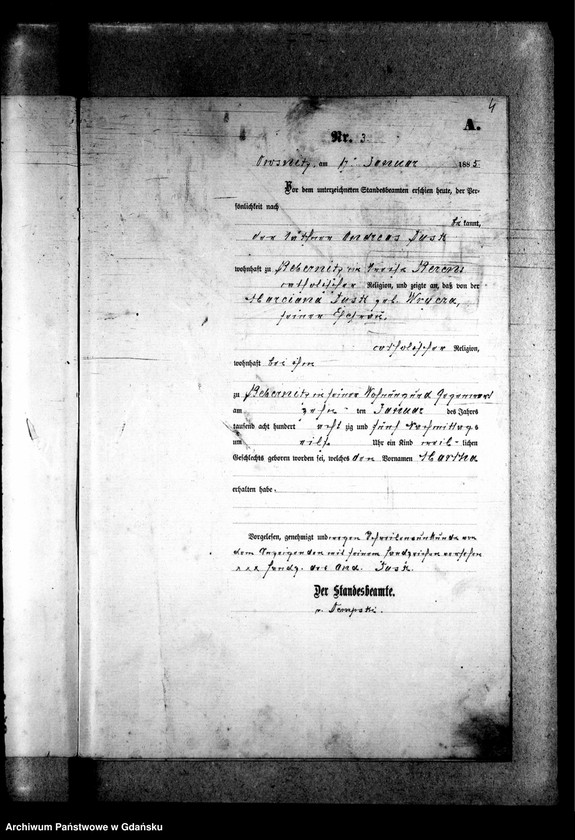 4
A.
Nr. 3
am 17. Januar 1885
Vor dem unterzeichneten Standesbeamten erschien heute, der Per-
sönlichkeit nach
be kannt,
der Käthner Andreas Jusk
wohnhaft zu im Kreise Berent
catholischer Religion, und zeigte an, daß von der
Marciana Jusk geb. Wrycza,
seiner Ehefrau,
catholischer Religion,
wohnhaft bei ihm
zu in seiner Wohnung und Gegenwart
am zehn ten Januar des Jahrs
tausend acht hundert acht zig und fünf Vormittags
um eilf Uhr ein Kind weib- lichen
Geschlechts geboren worden sei, welches den Vornamen Martha
erhalten habe.
Vorgelesen, genehmigt und wegen Schreibensunkunde von
dem Anzeigenden mit seinem Handzeichen versehen
xxx Handz. des And. Jusk
Der Standesbeamte.
Archiwum Państwowe w Gdańsku